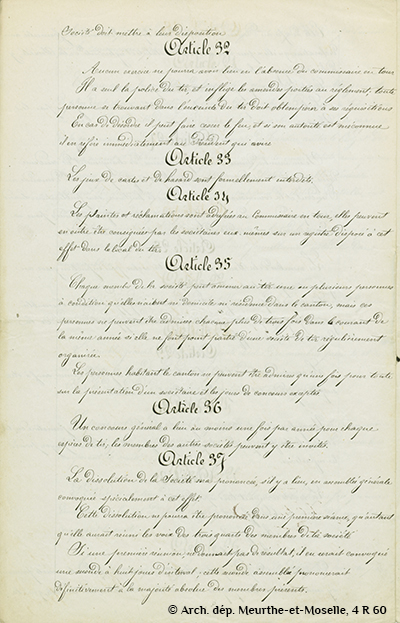 Société doit mettre à leur disposition
Article 32
Aucun exercice ne pourra avoir lieu en l'absence du commissaire en tour
Il a seul la police du tir et inflige les amendes portées au règlement, toute
personne se trouvant dans l'enceinte du tir doit obtempérer à ses réquisitions
En cas de désordre il peut faire cesser le feu, et si son autorité est méconnue
il en réfère immédiatement au Président qui avise
Article 33
Les jeux de cartes et de hasard sont formellement interdits.
Article 34
Les plaintes et réclamations sont adressées au Commissaire en tour, elles peuvent
en outre être consignées par les sociétaires eux-mêmes sur un registre disposé à cet
effet dans le local du tir.
Article 35
Chaque membre de la société peut amener au tir une ou plusieurs personnes
à condition qu'elles n'aient ni domicile ni résidence dans le canton, mais ces
personnes ne peuvent être admises chacune plus de trois fois dans le courant de
la même année si elle ne font point partie d'une société de tir régulièrement
organisée.
Les personnes habitant le canton ne peuvent être admises qu'une fois pour toute
sur la présentation d'un sociétaire et les jours de concours exceptés
Article 36
Un concours général a lieu au moins une fois par année pour chaque
espèce de tir, les membres des autres sociétés peuvent y être invités.
Article 37
La dissolution de la Société sera prononcée, s'il y a lieu, en assemblée générale
convoquée spécialement à cet effet.
Cette dissolution ne pourra être prononcée dans une première séance, qu'autant
qu'elle aurait réuni les voix des trois quarts des membres de la société
Si une première réunion ne donnait pas de résultat, il en serait convoqué
une seconde à huit jours d'interval; cette seconde assemblée prononcerait
définitivement à la majorité absolue des membres présents.
© Arch. dép. Meurthe-et-Moselle, 4 R 60